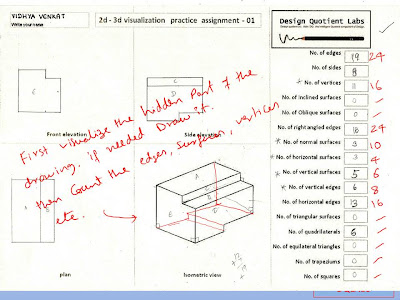 VIDHYA VENKAT
Write your name
2d - 3d visualization practice assignment - 01
Design Quotient Labs
No. of edges 19 24
No. of sides 8
* No. of vertices 8 16
No. of Inclined surfaces 0
No. of Oblique surfaces 0
No. of right angled edges 24
* No. of normal surfaces 3 10
* No. of horizontal surfaces 3 4
* No. of vertical surfaces 5 6
* No. of vertical edges 6 8
No. of horizontal edges 13 16
No. of triangular surfaces 0
No. of quadrilaterals 6
No. of equilateral triangles 0
No. of trapeziums 0
No. of squares 0
E
C
D
Front elevation
Side elevation
First visualize the hidden Part of the
drawing. if needed Draw it.
then Count the edges, surfaces, vertices
etc.
E
D
plan
Isometric view